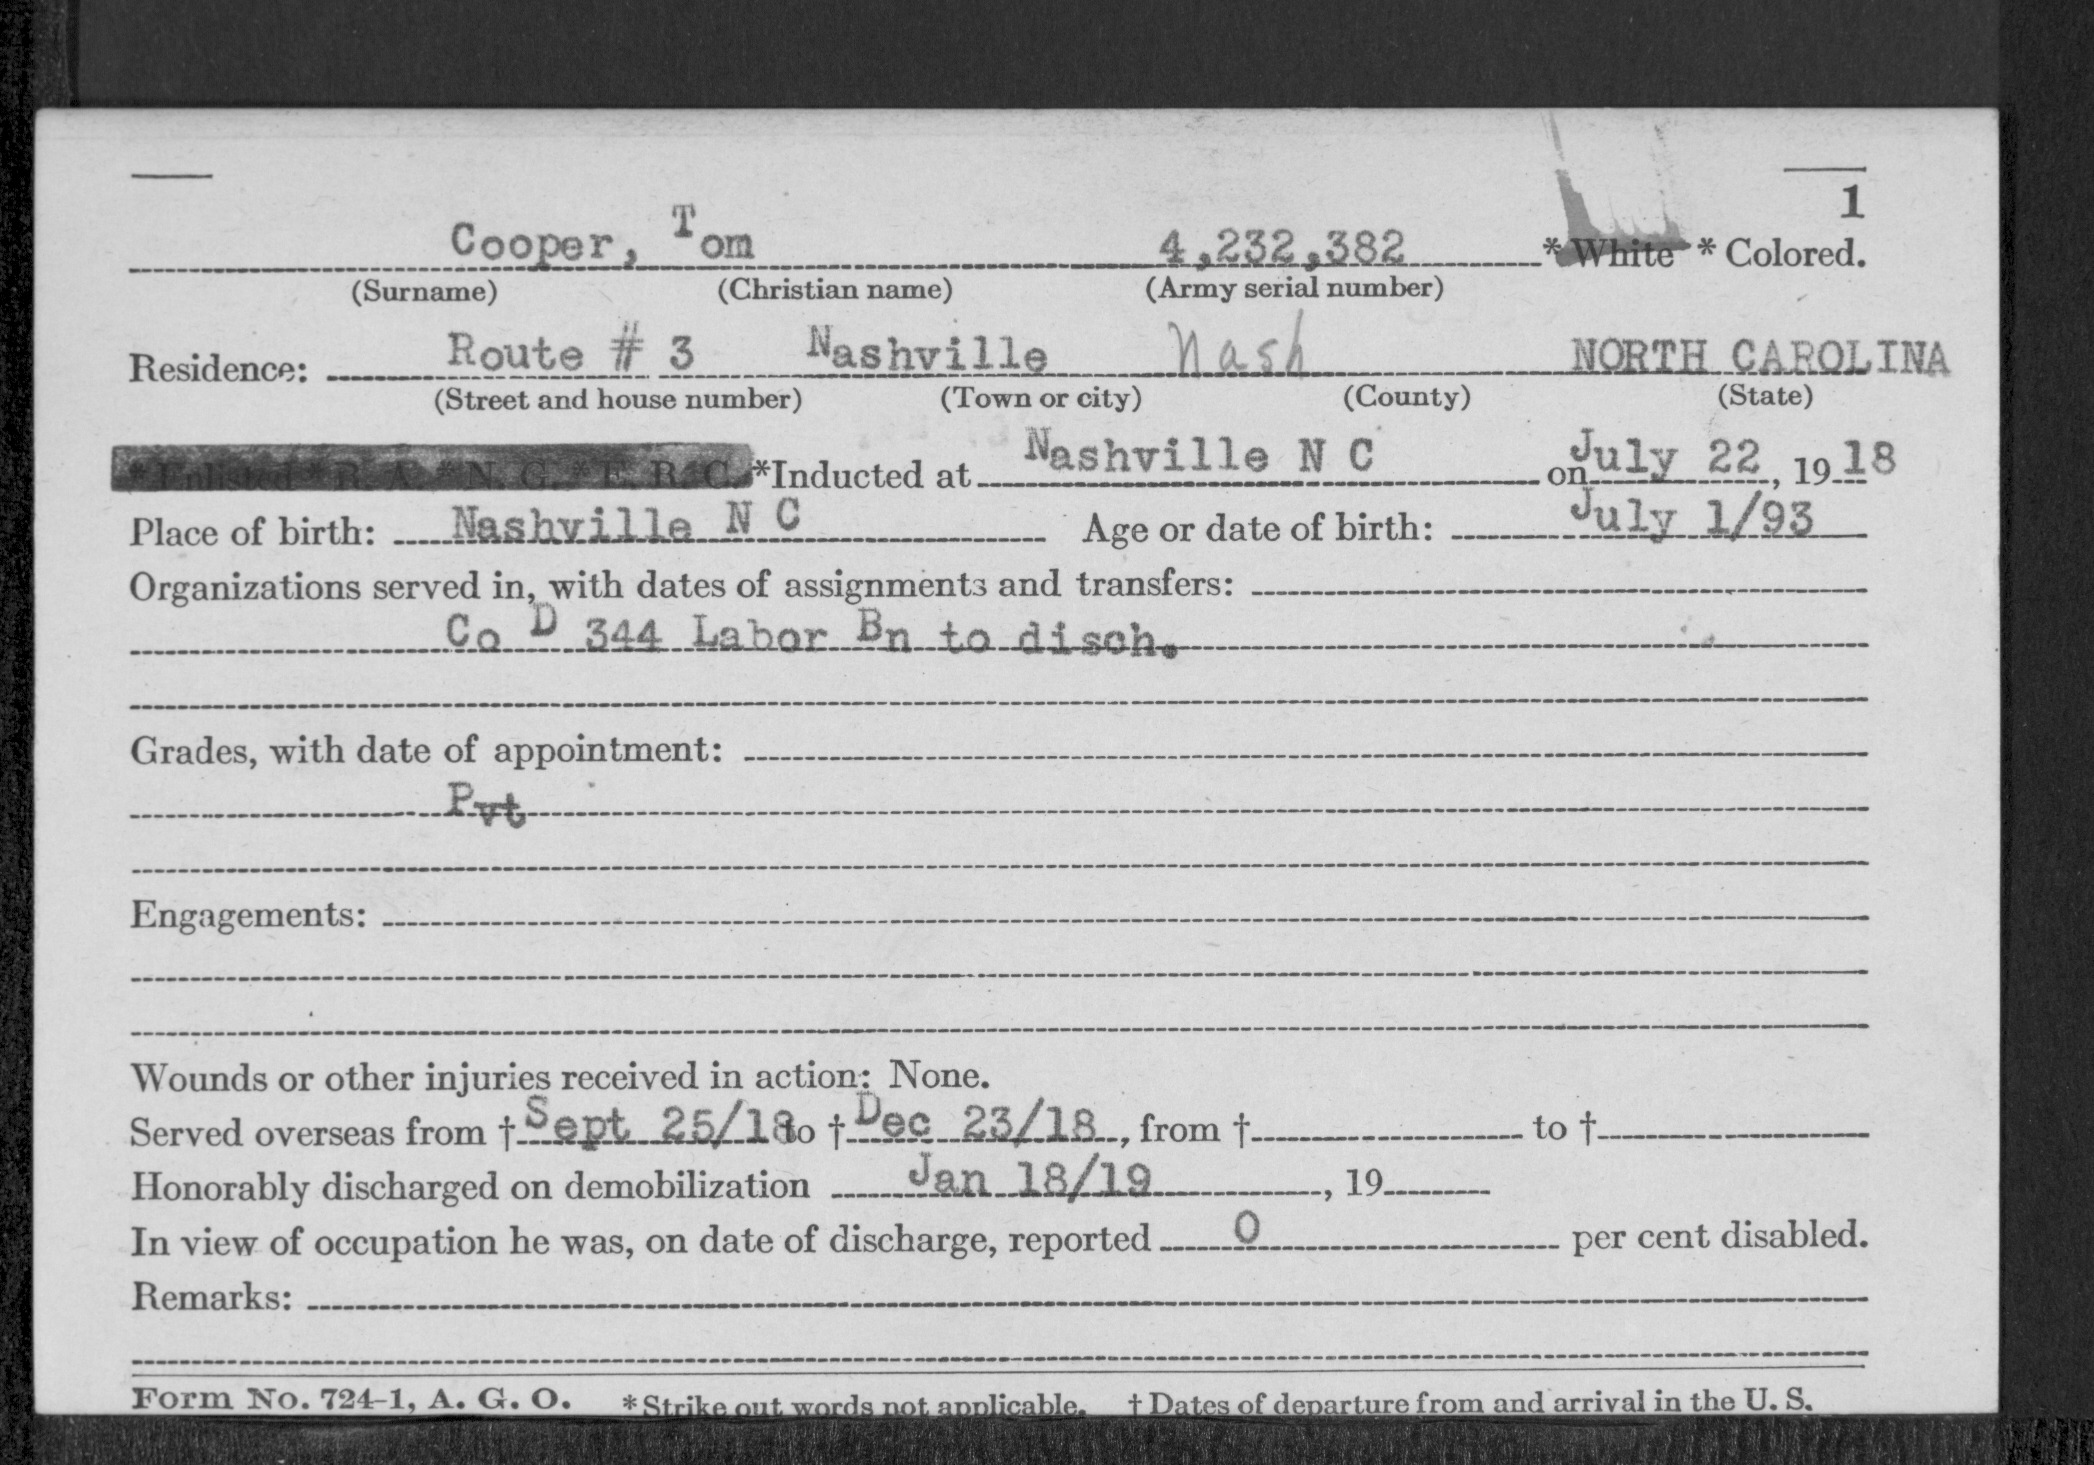 1
Cooper, Tom 4,232,382 * White * Colored.
(Surname) (Christian name) (Army serial number)
Residence: Route # 3 Nashville Nash NORTH CAROLINA
(Street and house number) (Town or city) (County) (State)
* Enlisted * R. A. * N. G. * E. R. C. *Inducted at Nashville N C on July 22, 1918
Place of birth: Nashville N C Age or date of birth: July 1/93
Organizations served in, with dates of assignments and transfers:
Co D 344 Labor Bn to disch.
Grades, with date of appointment:
Pvt
Engagements:
Wounds or other injuries received in action: None.
Served overseas from † Sept 25/18 to † Dec 23/18, from † to †
Honorably discharged on demobilization Jan 18/19, 19
In view of occupation he was, on date of discharge, reported 0 per cent disabled.
Remarks:
Form No. 724-1, A. G. O. * Strike out words not applicable. † Dates of departure from and arrival in the U. S.